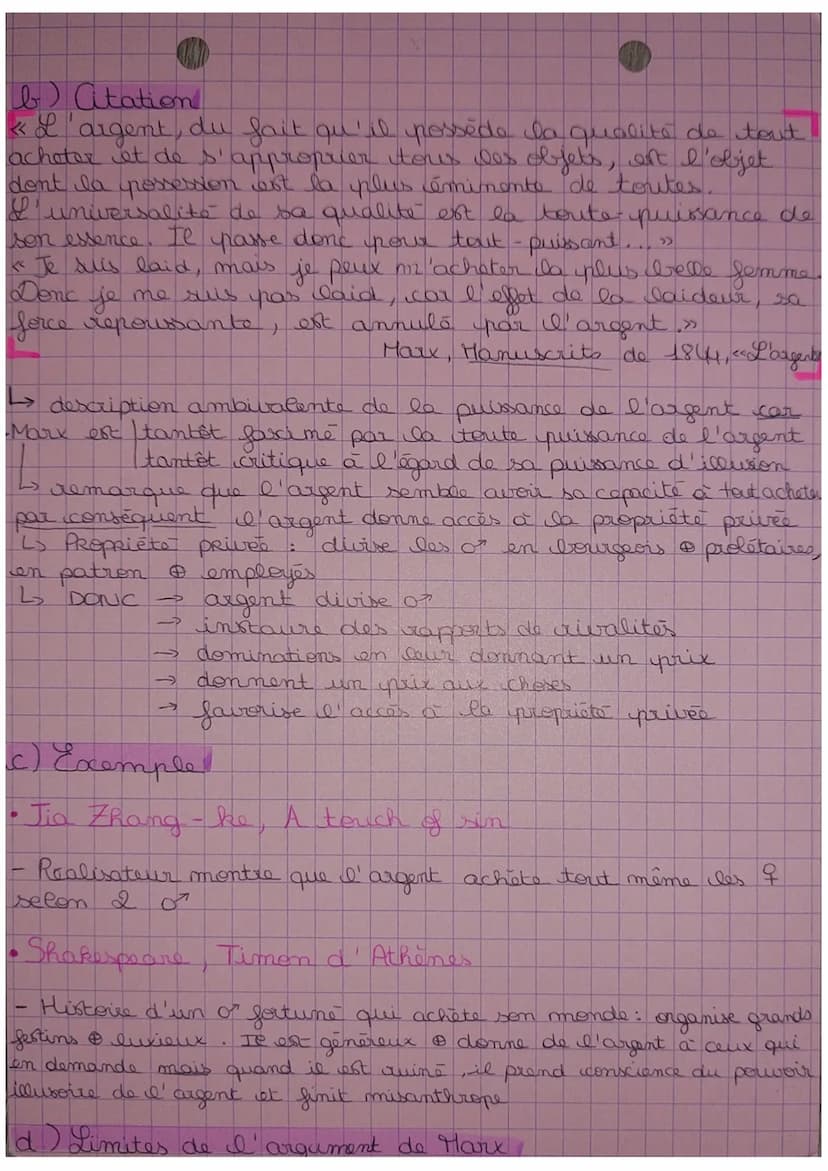 b) Citation
« L'argent, du fait qu'il possède la qualité de tout
acheter et de s'approprier tous les objets, est l'objet
dont la possession est la plus éminente de toutes.
L'universalité de sa qualité est la toute-puissance de
son essence. Il passe donc pour tout-puissant... »
« Je suis laid, mais je peux m'acheter la plus belle femme.
Donc je ne suis pas laid, car l'effet de la laideur, sa
force repoussante, est annulé par l'argent.»
Marx, Manuscrits de 1844, «L'argent»
↳ description ambivalente de la puissance de l'argent car
Marx est tantôt fasciné par la toute puissance de l'argent
tantôt critique à l'égard de sa puissance d'illusion
↳ remarque que l'argent semble avoir sa capacité à tout acheter
par conséquent l'argent donne accès à la propriété privée
↳ Propriété privée : divise les ♂ en bourgeois ⊕ prolétaires,
en patron ⊕ employés
↳ DONC → argent divise ♂
→ instaure des rapports de rivalités
→ dominations en leur donnant un prix
→ donnent un prix aux choses
→ favorise l'accès à la propriété privée
c) Exemple
• Jia Zhang-ke, A touch of sin
- Réalisateur montre que l'argent achète tout même les ♀
selon 2 ♂
• Shakespeare, Timon d'Athènes
- Histoire d'un ♂ fortuné qui achète son monde : organise grands
festins ⊕ luxieux. Il est généreux ⊕ donne de l'argent à ceux qui
en demande mais quand il est ruiné, il prend conscience du pouvoir
illusoire de l'argent et finit misanthrope
d) Limites de l'argument de Marx